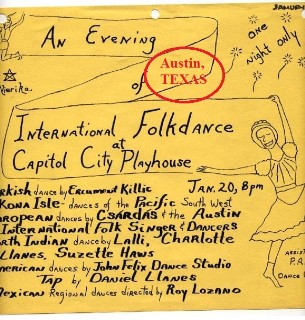 JANUARY
An Evening
Austin,
TEXAS
of
One
night only
Marika
International Folkdance
at
Capitol City Playhouse
rkish dance by Ercument Killic
JAN. 20, 8pm
KONA ISLE - dances of the Pacific South West
ropean dances by CSARDAS & the Austin
International Folk Singers & Dancers
rth Indian dance by Lalli, Charlotte
LLANES, Suzette Haws
merican dances by John Felix Dance Studio
Tap by Daniel Llanes
exican Regional dances directed by Roy Lozano
ASSIST
P.A.
DANCE